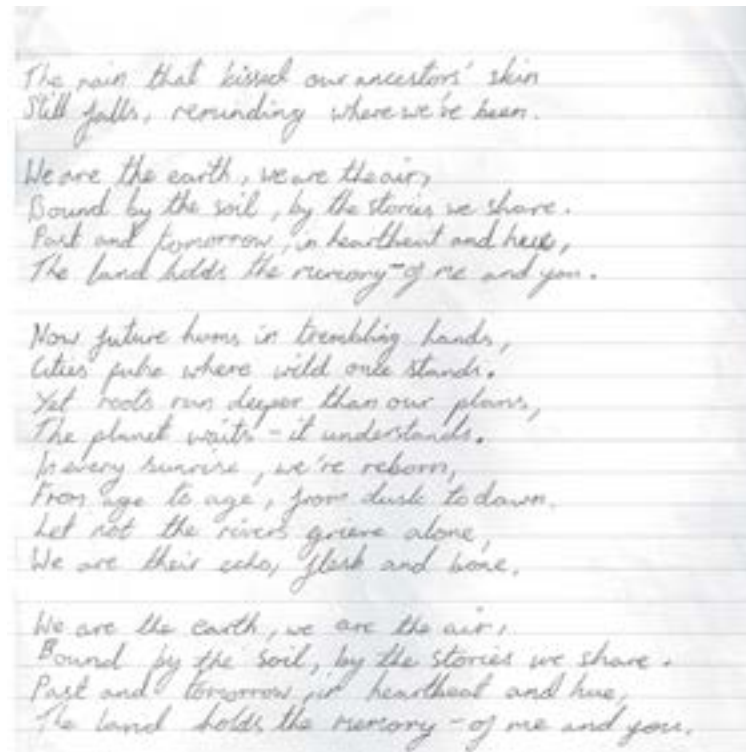 The rain that kissed our ancestors' skin
Still falls, reminding where we've been.
We are the earth, we are the air,
Bound by the soil, by the stories we share.
Past and tomorrow, in heartbeat and hue,
The land holds the memory - of me and you.
Now future hums in trembling hands,
Cities pulse where wild once stands.
Yet roots run deeper than our plans,
The planet waits - it understands.
In every sunrise, we're reborn,
From age to age, from dusk to dawn.
Let not the rivers grieve alone,
We are their echo, flesh and bone.
We are the earth, we are the air,
Bound by the soil, by the stories we share.
Past and tomorrow, in heartbeat and hue,
The land holds the memory - of me and you.